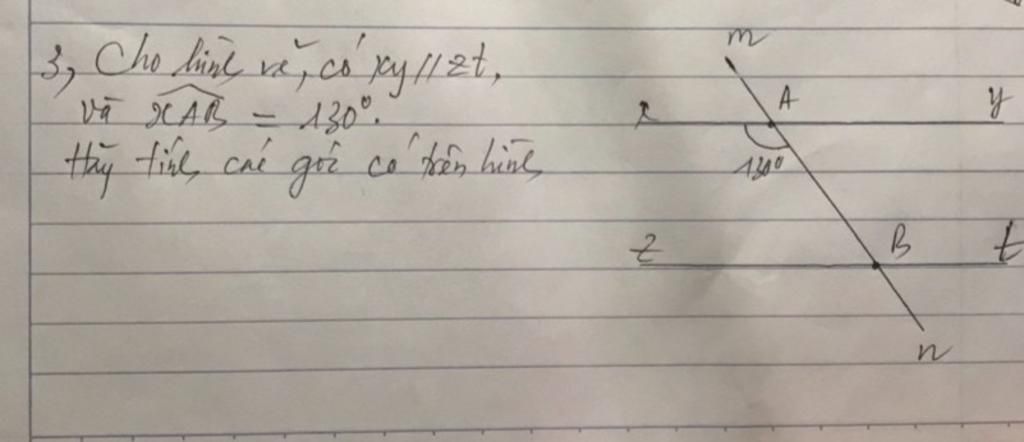 3, Cho hình vẽ, có xy // zt,
và xAB = 130°.
Hãy tính các góc có trên hình
m
A
x y
130°
z B t
n